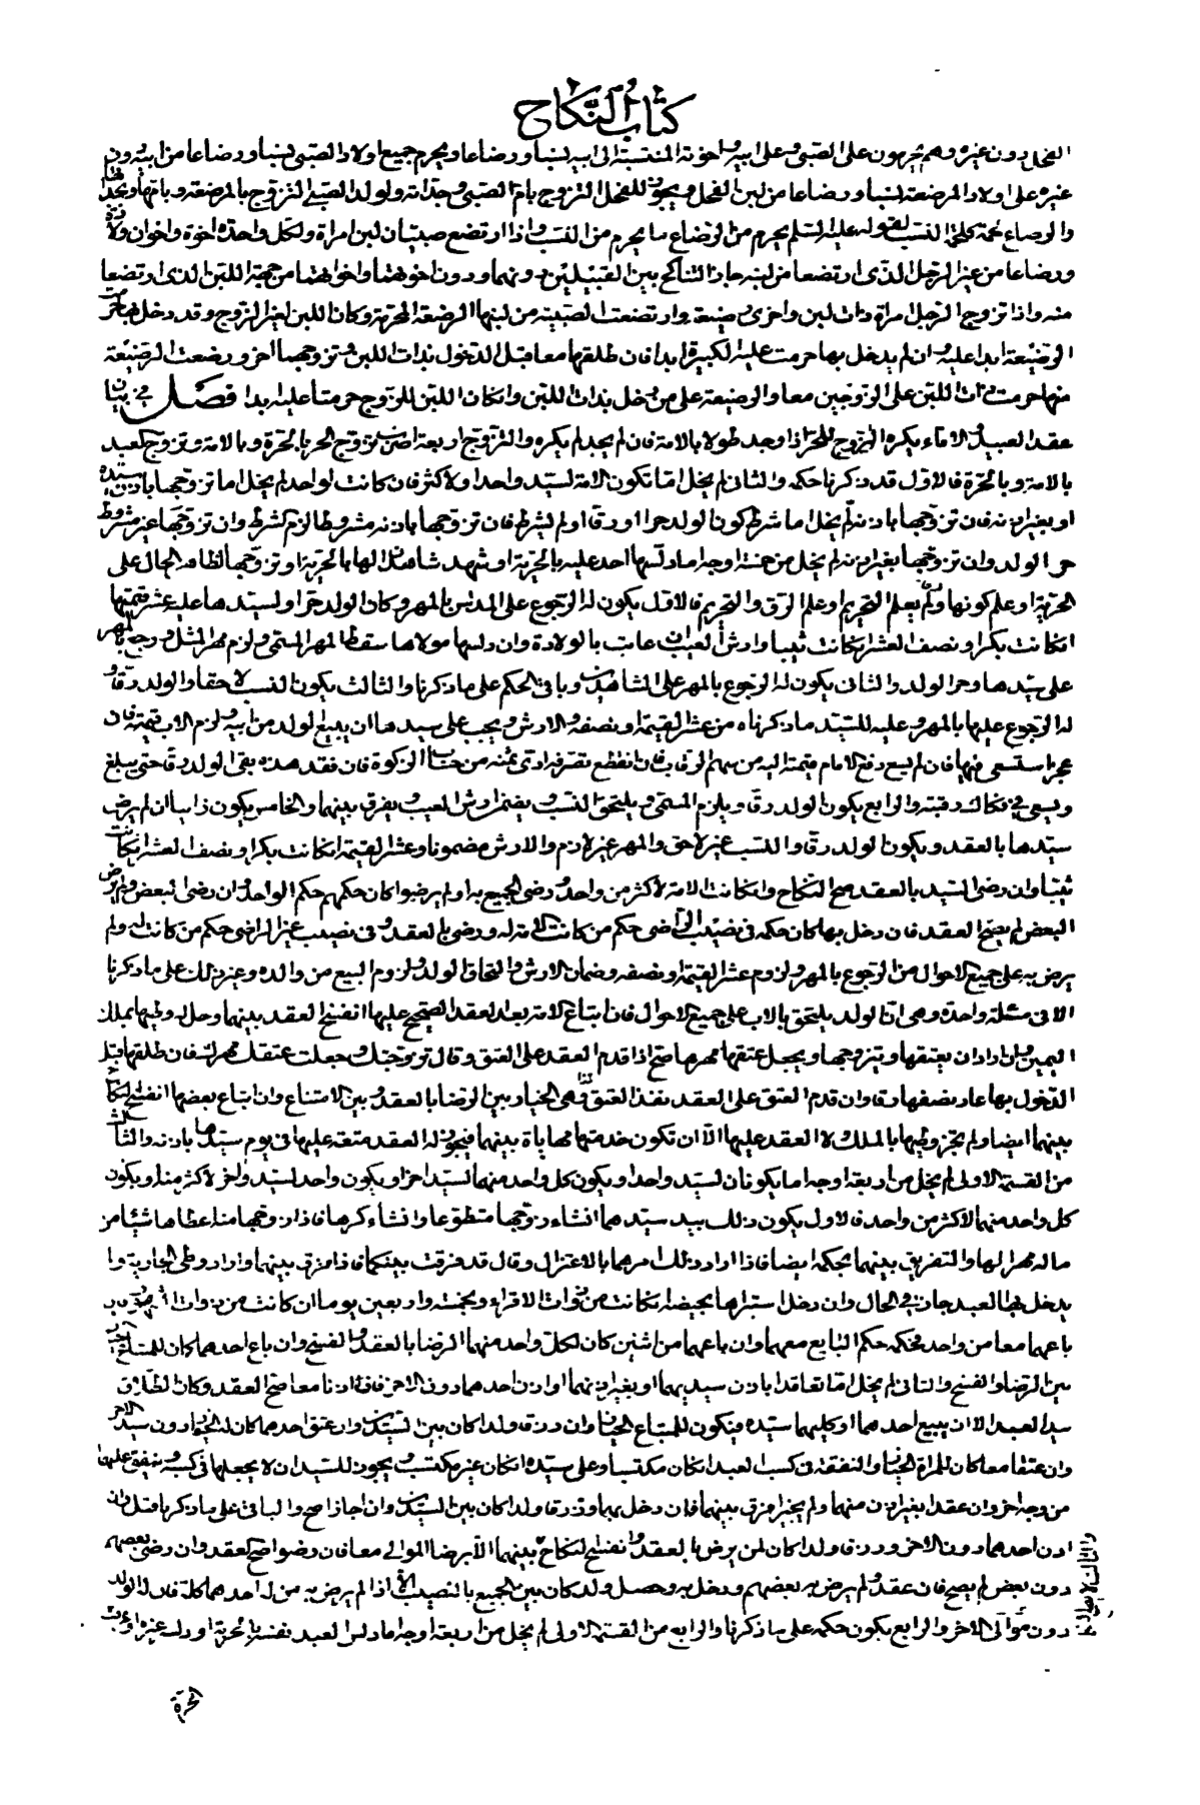 كتاب النكاح
الفحل دون غيره وهم يحرمون على الصبي وعلى ابيه واخوته المنتسبة الى ابيه نسبا ورضاعا ويحرم جميع اولاد الصبي نسبا ورضاعا من ابيه دون
غيره على اولاد المرضعة نسبا ورضاعا من لبن الفحل ويجوز للفحل التزوج بام الصبي وجداته ولوالد الصبي التزوج بالمرضعة وبامهاتها وبجداتها
والرضاع لحمة كلحمة النسب لقوله عليه السلم يحرم من الرضاع ما يحرم من النسب واذا ارتضع صبيتان لبن امراة ولكل واحدة اخوة واخوات ولادة
ورضاعا من غير الرجل الذى ارتضعا من لبنه جاز التناكح بين القبيلين دونهما ودون اخوتهما واخواتهما من جهة اللبن الذى ارتضعا
منه واذا تزوج الرجل امراة ذات لبن واخرى رضيعة وارتضعت الصبية من لبنها الرضعة المحرمة وكان اللبن لغير الزوج وقد دخل بها حرمت
الرضيعة ابدا عليه وان لم يدخل بها حرمت عليه الكبيرة ابدا فان طلقهما معا قبل الدخول بذات اللبن وتزوجهما اخر ورضعت الرضيعة
منها حرمت ذات اللبن على الزوجين معا والرضيعة على من دخل بذات اللبن وان كان اللبن للزوج حرمتا عليه ابدا فصل في بيان
عقد العبيد والاماء يكره التزوج للحر اذا وجد طولا بالامة فان لم يجد لم يكره والتزوج اربعة اضرب تزوج الحر بالحرة وبالامة وتزوج العبد
بالامة وبالحرة فالاول قد ذكرنا حكمه والثانى لم يخل اما تكون الامة لسيد واحد او لاكثر فان كانت لواحد لم يخل اما تزوجها باذن سيده
او بغير اذنه فان تزوجها باذنه لم يخل اما شرط كون الولد حرا او رقا او لم يشرط فان تزوجها باذنه مشروطا لزم الشرط وان تزوجها غير مشروط
حر الولد وان تزوجها بغير اذنه لم يخل من خمسة اوجه اما دلسها احد عليه بالحرية او شهد شاهدان لها بالحرية او تزوجها لظاهر الحال على
الحرية او علم كونها رقا ولم يعلم التحريم او علم الرق والتحريم فالاول يكون له الرجوع على المدلس بالمهر وكان الولد حرا ولسيدها عليه عشر قيمتها
ان كانت بكرا ونصف العشر ان كانت ثيبا وارش العيب ان عابت بالولادة وان دلسها مولاها سقط المهر المسمى ولزم مهر المثل ورجع بالمهر
على سيدها وحر الولد والثانى يكون له الرجوع بالمهر على الشاهدين وباقى الحكم على ما ذكرنا والثالث يكون النسب لاحقا والولد رقا و
له الرجوع عليها بالمهر وعليه للسيد ما ذكرناه من عشر القيمة او نصفه والارش ويجب على سيدها ان يبيع الولد من ابيه ولزم الاب قيمته فان
عجز استسعى فيها فان لم يسع دفع الامام قيمته اليه من سهم الرقاب فان انقطع تصرفه ادى ثمنه من حساب الزكوة فان فقد هذه بقى الولد رقا حتى يبلغ
ويسعى في فكاك رقبته والرابع يكون الولد رقا ويلزم المسمى ويلتحق النسب ويضمن ارش العيب ويفرق بينهما والخامس يكون زانيا ان لم يرض
سيدها بالعقد ويكون الولد رقا والنسب غير لاحق والمهر غير لازم والارش مضمونا وعشر القيمة ان كانت بكرا ونصف العشر ان كانت
ثيبا وان رضى السيد بالعقد صح النكاح وان كانت الامة لاكثر من واحد ورضى الجميع به او لم يرضوا كان حكمهم حكم الواحد وان رضى البعض ولم يرض
البعض لم يصح العقد فان دخل بها كان حكمه فى نصيب الراضى حكم من كانت الامة له ورضى بالعقد وفى نصيب غير الراضى حكم من كانت له ولم
يرض به على جميع الاحوال من الرجوع بالمهر ولزوم عشر القيمة او نصفه وضمان الارش والتحاق الولد ولزوم البيع من والده وغير ذلك على ما ذكرنا
الا فى مسئلة واحدة وهى ان الولد يلتحق بالاب على جميع الاحوال فان ابتاع الامة بعد العقد الصحيح عليها انفسخ العقد بينهما وحل له وطيها بملك
اليمين وان اراد ان يعتقها ويتزوجها ويجعل عتقها مهرها صح اذا قدم العقد على العتق وقال تزوجتك وجعلت عتقك مهرك فان طلقها قبل
الدخول بها عاد نصفها رقا وان قدم العتق على العقد نفذ العتق وهى بالخيار بين الرضا بالعقد وبين الامتناع وان ابتاع بعضها انفسخ النكاح
بينهما ايضا ولم يجز وطيها بالملك ولا العقد عليها الا ان تكون خدمتها مهاياة بينهما فيجوز له العقد متعة عليها فى يوم سيدها باذنه والثالث
من القسمة الاولى لم يخل من اربعة اوجه اما يكونان لسيد واحد او يكون كل واحد منهما لسيد اخر او يكون واحد لسيد واخر لاكثر منه او يكون
كل واحد منهما لاكثر من واحد فالاول يكون ذلك بيد سيدهما ان شاء زوجها متطوعا وان شاء كرها فاذا زوجها منه اعطاها شيئا من
ماله مهرا لها والتفريق بينهما بحكمه ايضا فاذا اراد ذلك امرهما بالاعتزال وقال قد فرقت بينكما فاذا فرق بينهما واراد وطى الجارية ولم
يدخل بها العبد جاز فى الحال وان دخل استبراها بحيضة ان كانت من ذوات الاقراء وبخمسة واربعين يوما ان كانت من ذوات الشهور فان
باعهما معا من واحد فحكمه حكم البايع معهما وان باعهما من اثنين كان لكل واحد منهما الرضا بالعقد والفسخ وان باع احدهما كان للمبتاع الخيار
بين الرضا والفسخ والثانى لم يخل اما تعاقدا باذن سيديهما او بغير اذنهما او اذن احدهما دون الاخر فان اذنا معا صح العقد وكان الطلاق
بيد العبد الا ان يبيع احدهما او كليهما سيده فيكون للمبتاع الخيار وان رزق ولدا كان بين السيدين وان عتق احدهما كان له الخيار دون سيد الاخر
وان عتقا معا كان للمراة الخيار والنفقة فى كسب العبد ان كان مكتسبا وعلى سيده ان كان غير مكتسب ويجوز للسيد ان لا يجعلها فى كسبه وينفق عليهما
من وجه اخر وان عقدا بغير اذن منهما ولم يجيزا فرق بينهما فان دخل بها ورزقا ولدا كان بين السيدين وان اجازا صح والباقى على ما ذكرنا قبل وان
اذن احدهما دون الاخر ورزقا ولدا كان لمن لم يرض بالعقد وانفسخ النكاح بينهما الا برضا الموالى معا فان رضوا صح العقد وان رضى بعضهم
دون بعض لم يصح فان عقد ولم يرض به بعضهم ودخل به وحصل ولد كان بين الجميع بالنصيب الا اذا لم يرض به من له احدهما كله فان له الولد
دون موالى الاخر والرابع يكون حكمه على ما ذكرنا والرابع من القسمة الاولى لم يخل من اربعة اوجه اما دلس العبد نفسه بالحرية او دلسه غيره او عرفت
الحرة